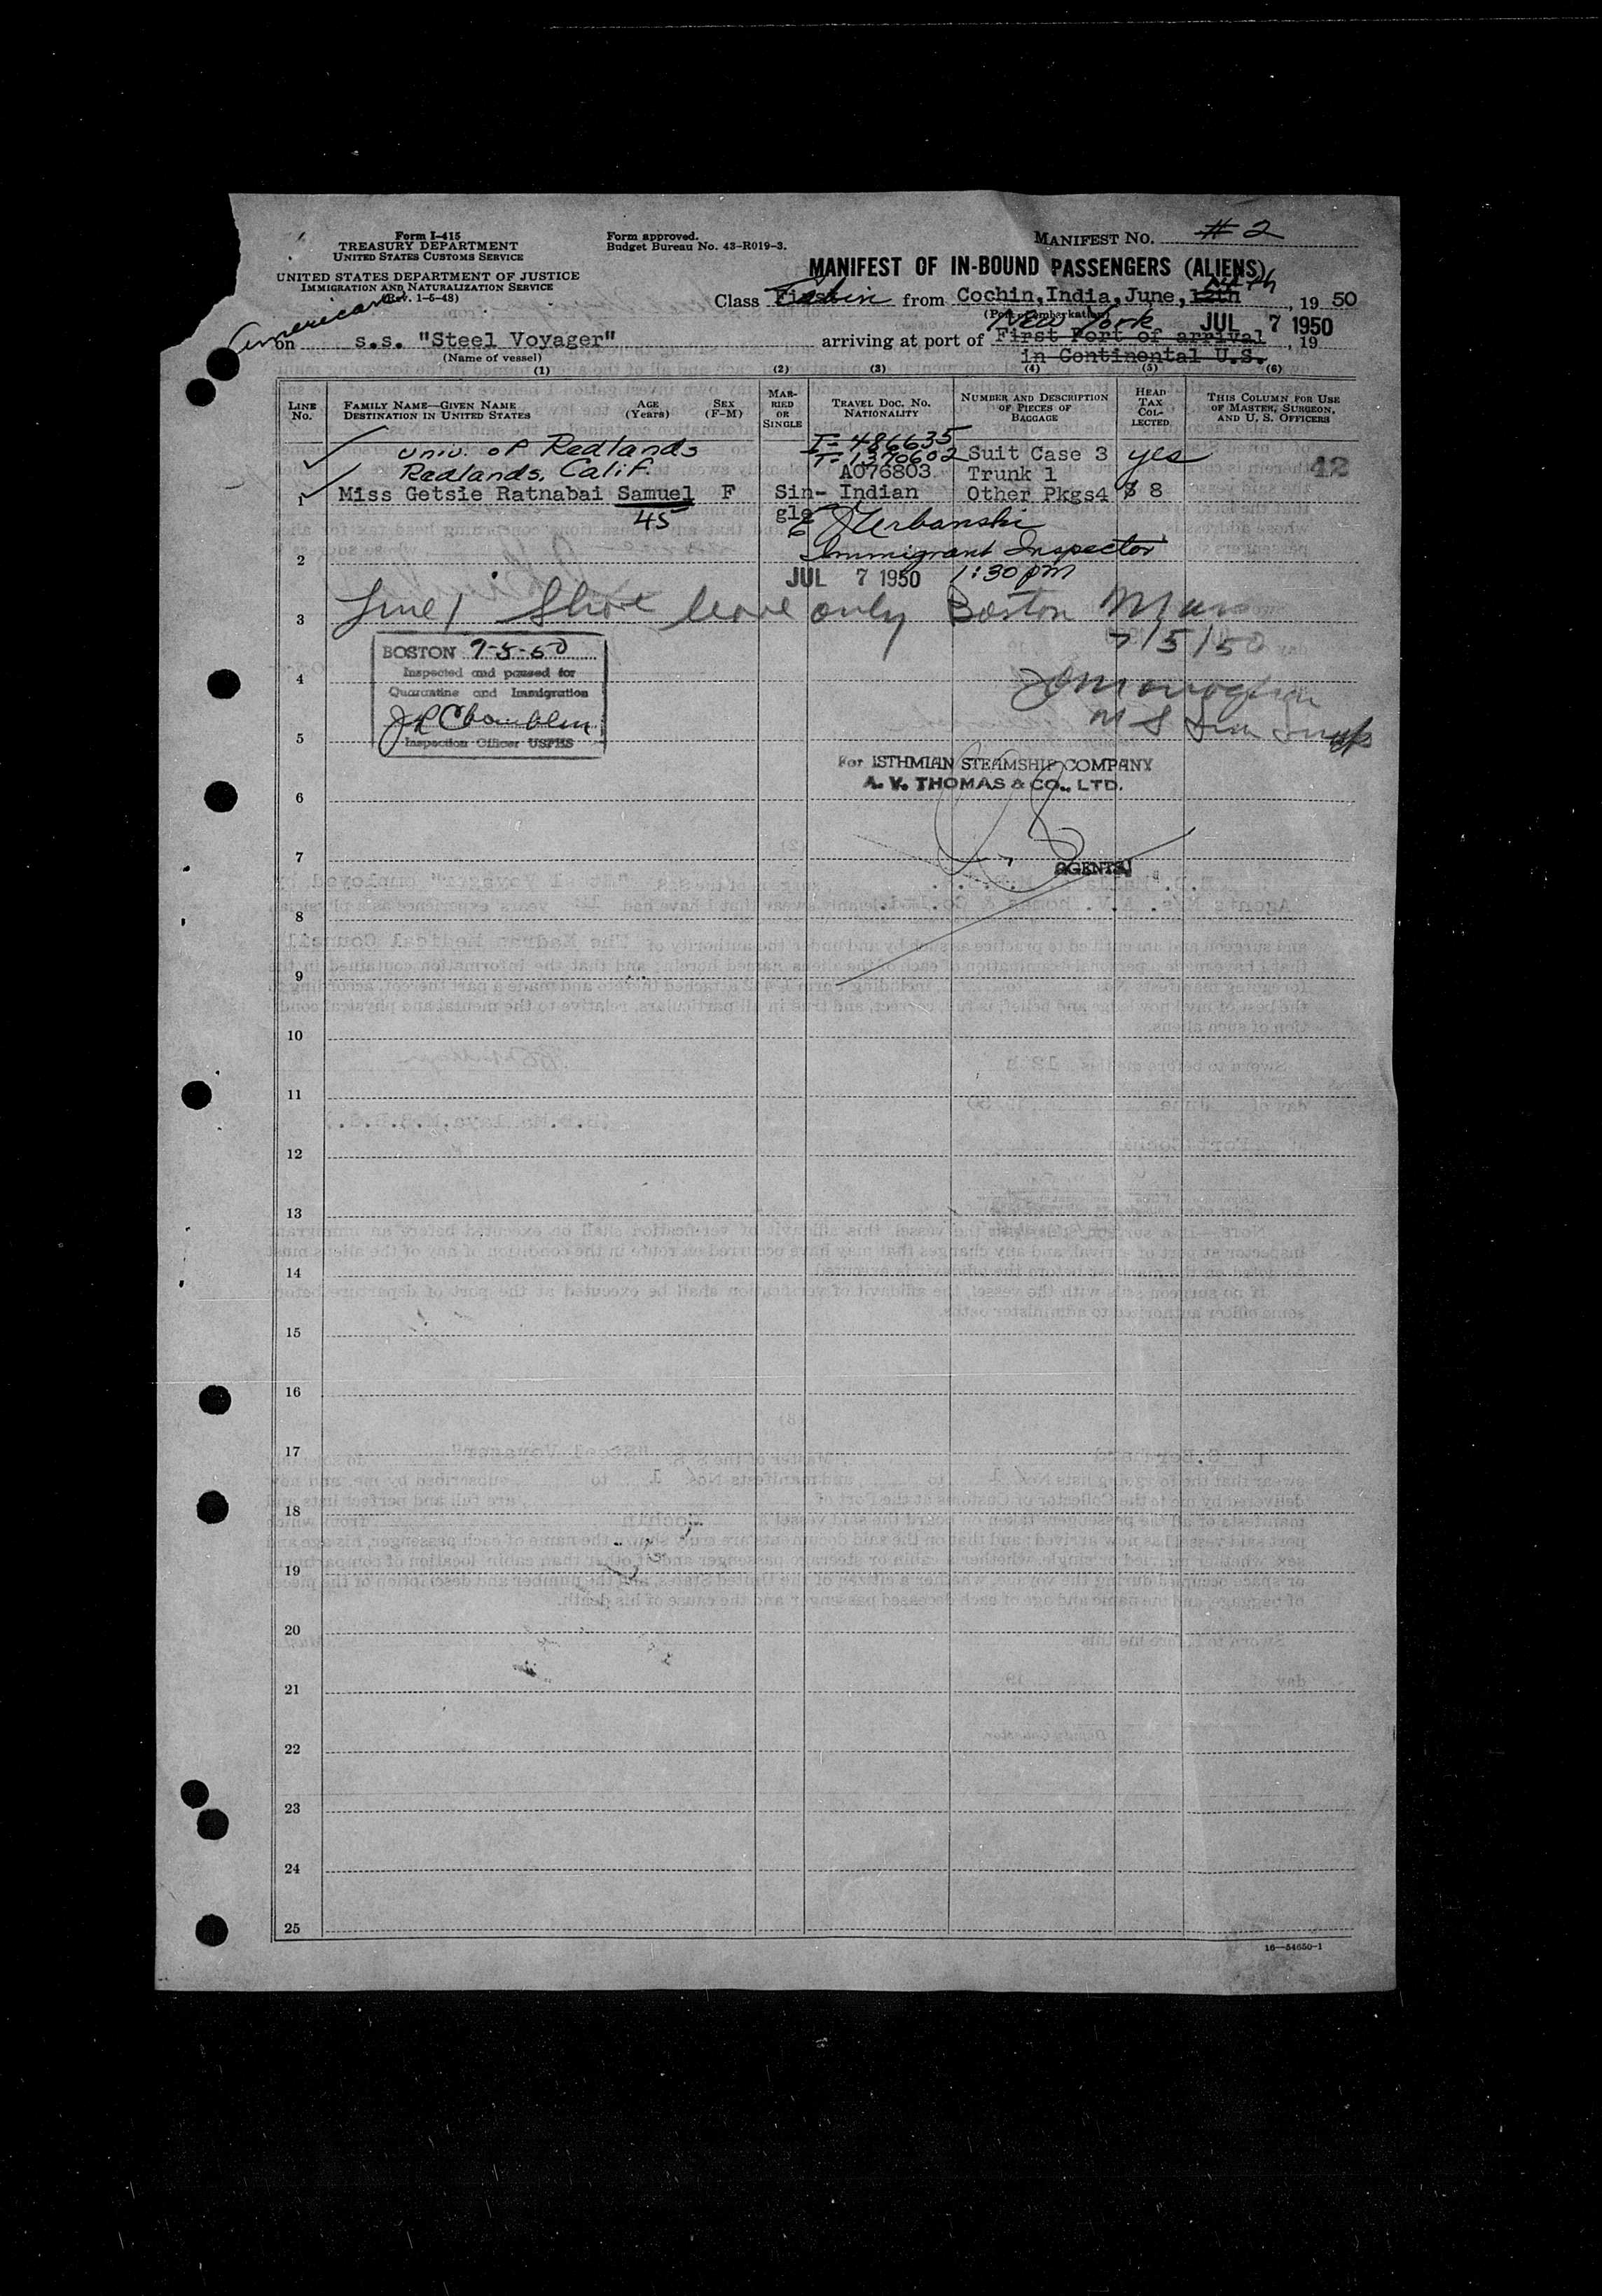 Form I-415
TREASURY DEPARTMENT
UNITED STATES CUSTOMS SERVICE
UNITED STATES DEPARTMENT OF JUSTICE
IMMIGRATION AND NATURALIZATION SERVICE
(Rev. 1-5-48)
Form approved.
Budget Bureau No. 43-R019-3.
MANIFEST NO. #2
MANIFEST OF IN-BOUND PASSENGERS (ALIENS)
Class First Cabin from Cochin, India, June, 12th 14th, 1950
(Port of embarkation)
American
on s.s. "Steel Voyager"
(Name of vessel)
New York JUL 7 1950
arriving at port of First Port of arrival, 19
in Continental U.S.
(1) (2) (3) (4) (5) (6)
LINE No.
FAMILY NAME—GIVEN NAME
DESTINATION IN UNITED STATES
AGE (Years)
SEX (F-M)
MARRIED OR SINGLE
TRAVEL DOC. NO.
NATIONALITY
NUMBER AND DESCRIPTION OF PIECES OF BAGGAGE
HEAD TAX COLLECTED
THIS COLUMN FOR USE OF MASTER, SURGEON, AND U. S. OFFICERS
Univ. of Redlands
Redlands, Calif.
I-486635
T-1390602
A076803
Suit Case 3
Trunk 1
Other Pkgs4
yes
$ 8
42
1 Miss Getsie Ratnabai Samuel F Sin-gle Indian
45
E J Urbanski
Immigrant Inspector
2
JUL 7 1950 1:30 pm
3 Line 1 Shore leave only Boston Mass
7/5/50
BOSTON 7-5-50
Inspected and passed for
Quarantine and Immigration
Inspection Officer USPHS
4
5
For ISTHMIAN STEAMSHIP COMPANY
A. V. THOMAS & CO., LTD.
6
7
AGENTS
8
9
10
11
12
13
14
15
16
17
18
19
20
21
22
23
24
25
16—54650-1